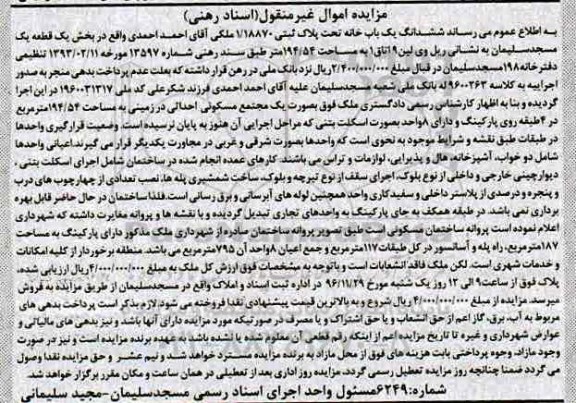 مزایده اموال غیرمنقول(اسناد رهنی)
به اطلاع عموم می رساند ششدانگ یک باب خانه تحت پلاک ثبتی ۱/۱۸۸۷۰ ملکی آقای احمد احمدی واقع در بخش یک قطعه یک
مسجدسلیمان به نشانی ریل وی لین ۱۹اتاق۱ به مساحت ۱۹۴/۵۴متر طبق سند رهنی شماره ۱۳۵۹۷ مورخه ۱۳۹۳/۰۲/۱۱ تنظیمی
دفترخانه ۱۹۸مسجدسلیمان در قبال مبلغ ۲/۴۰۰۰/۰۰۰/۰۰۰ریال نزد بانک ملی در رهن قرار داشته که بعلت عدم پرداخت بدهی منجر به صدور
اجراییه به کلاسه ۹۶۰۰۲۶۳ له بانک ملی شعبه مسجدسلیمان علیه آقای احمد احمدی فرزند شکرعلی کد ملی ۱۹۶۰۰۳۱۳۱۷ در این اجرا
گردیده و بنا به اظهار کارشناس رسمی دادگستری ملک فوق بصورت یک مجتمع مسکونی احداثی در زمینی به مساحت ۱۹۴/۵۴مترمربع
در ۴طبقه روی پارکینگ و دارای ۸واحد بصورت اسکلت بتنی که مراحل اجرایی آن هنوز به پایان نرسیده است. وضعیت قرارگیری واحدها
در طبقات طبق نقشه و شرایط موجود به نحوی است که واحدها بصورت شرقی و غربی در مجاورت یکدیگر قرار می گیرند.اعیانی واحدها
شامل دو خواب، آشپزخانه، هال و پذیرایی، لوازمات و تراس می باشند. کارهای عمده انجام شده در ساختمان شامل اجرای اسکلت بتنی،
دیوارچینی خارجی و داخلی از نوع بلوک، اجرای سقف از نوع تیرچه و بلوک، ساخت شمشیری پله ها، نصب تعدادی از چهارچوب های درب
و پنجره و درصدی از پلاستر داخلی و سفیدکاری واحد همچنین لوله های آبرسانی و برق رسانی است.فلذا ساختمان در حال حاضر قابل بهره
برداری نمی باشد. در طبقه همکف به جای پارکینگ به واحدهای تجاری تبدیل گردیده و با نقشه ها و پروانه مغایرت داشته که شهرداری
اعلام نموده است پروانه ساختمان مسکونی است طبق تصویر پروانه ساختمان صادره از شهرداری ملک مذکور دارای پارکینگ به مساحت
۱۸۷مترمربع، راه پله و آسانسور در کل طبقات ۱۱۷مترمربع و جمع اعیان ۸واحد آن ۷۹۵مترمربع می باشد. منطقه برخوردار از کلیه امکانات
و خدمات شهری است. لکن ملک فاقد انشعابات است و باتوجه به مشخصات فوق ارزش کل ملک به مبلغ ۴/۰۰۰/۰۰۰/۰۰۰ریال ارزیابی شده،
پلاک فوق از ساعت ۹ الی ۱۲ روز یک شنبه مورخ ۹۶/۱۱/۲۹ در اداره ثبت اسناد و املاک واقع در مسجدسلیمان از طریق مزایده به فروش
میرسد. مزایده از مبلغ ۴/۰۰۰/۰۰۰/۰۰۰ ریال شروع و به بالاترین قیمت پیشنهادی نقدا فروخته می شود.لازم بذکر است پرداخت بدهی های
مربوط به آب، برق، گاز اعم از حق انشعاب و یا حق اشتراک و یا مصرف در صورتیکه مورد مزایده دارای آنها باشد و نیز بدهی های مالیاتی و
عوارض شهرداری و غیره تا تاریخ مزایده اعم از اینکه رقم قطعی آن معلوم شده یا نشده باشد به عهده برنده مزایده است و نیز در صورت
وجود مازاد، وجوه پرداختی بابت هزینه های فوق از محل مازاد به برنده مزایده مسترد خواهد شد و نیم عشر و حق مزایده نقدا وصول
می گردد ضمنا چنانچه روز مزایده تعطیل رسمی گردد، مزایده روز اداری بعد از تعطیلی در همان ساعت و مکان مقرر برگزار خواهد شد.
شماره:۶۲۴۹مسئول واحد اجرای اسناد رسمی مسجدسلیمان-مجید سلیمانی